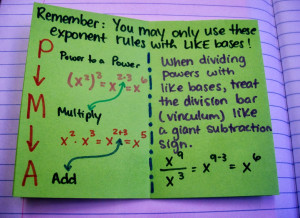 Remember: You may only use these
exponent rules with LIKE bases!
P
M
A
Power to a Power
(x²)³ = x²·³ = x⁶
Multiply
x² · x³ = x²⁺³ = x⁵
Add
When dividing
powers with
like bases, treat
the division bar
(vinculum) like
a giant subtraction
sign.
x⁹/x³ = x⁹⁻³ = x⁶